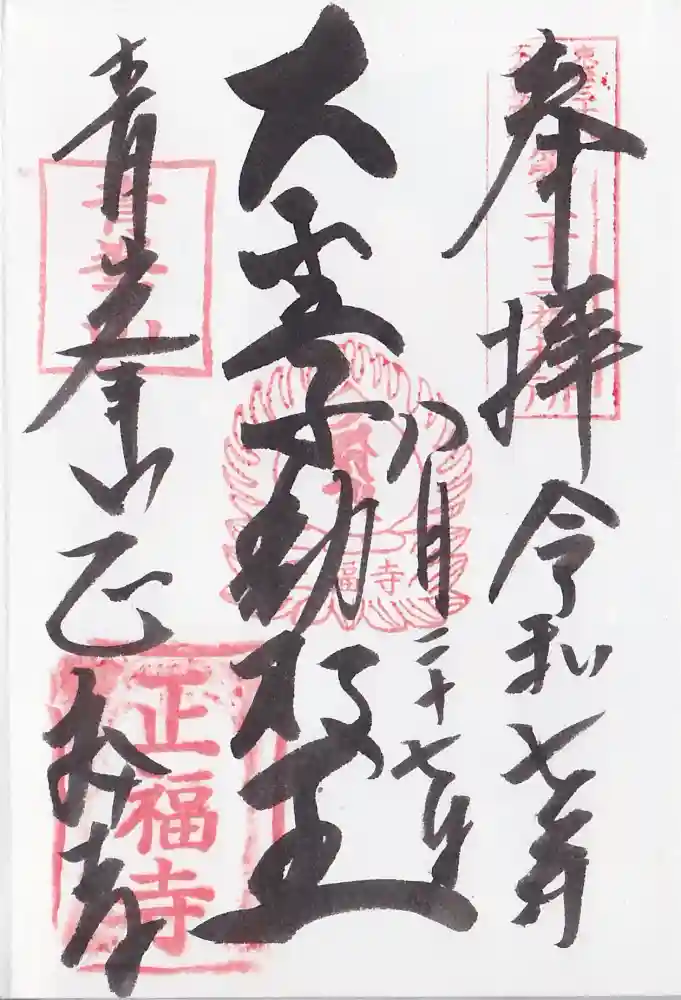 奉拝 令和七年
八月二十七日
大聖不動明王
青峯山 正福寺
青峯山
福寺
正福寺